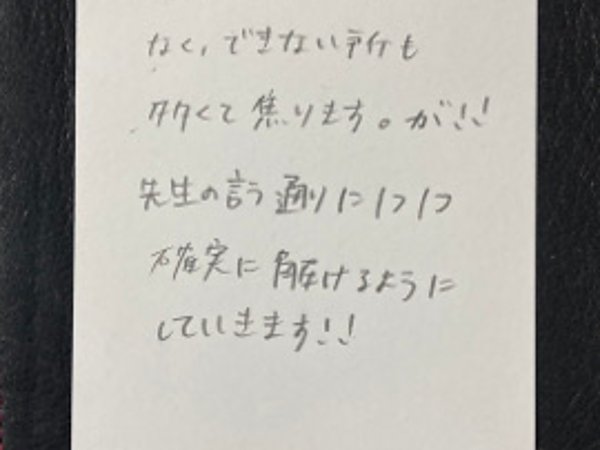 なく、できない所も
多くて焦ります。が!!
先生の言う通りに1つ1つ
確実に解けるように
していきます!!